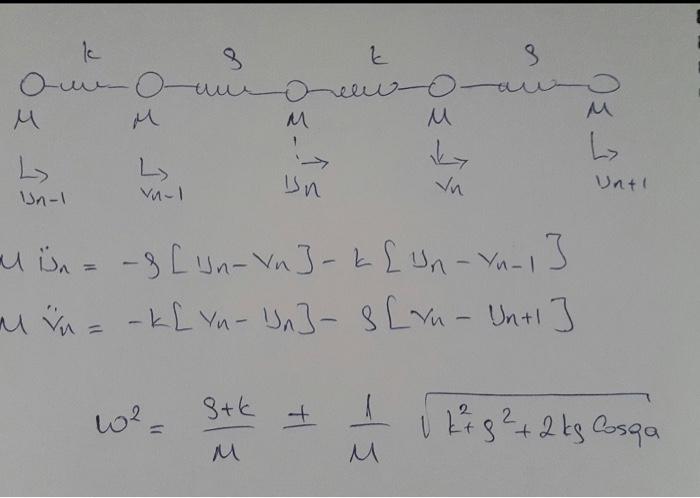 k g k g
M M M M M
Un-1 Vn-1 Un Vn Un+1
M Ün = -g [Un - Vn] - k [Un - Vn-1]
M V̈n = -k [Vn - Un] - g [Vn - Un+1]
ω² = g+k/M ± 1/M √k²+g²+2kg Cosqa